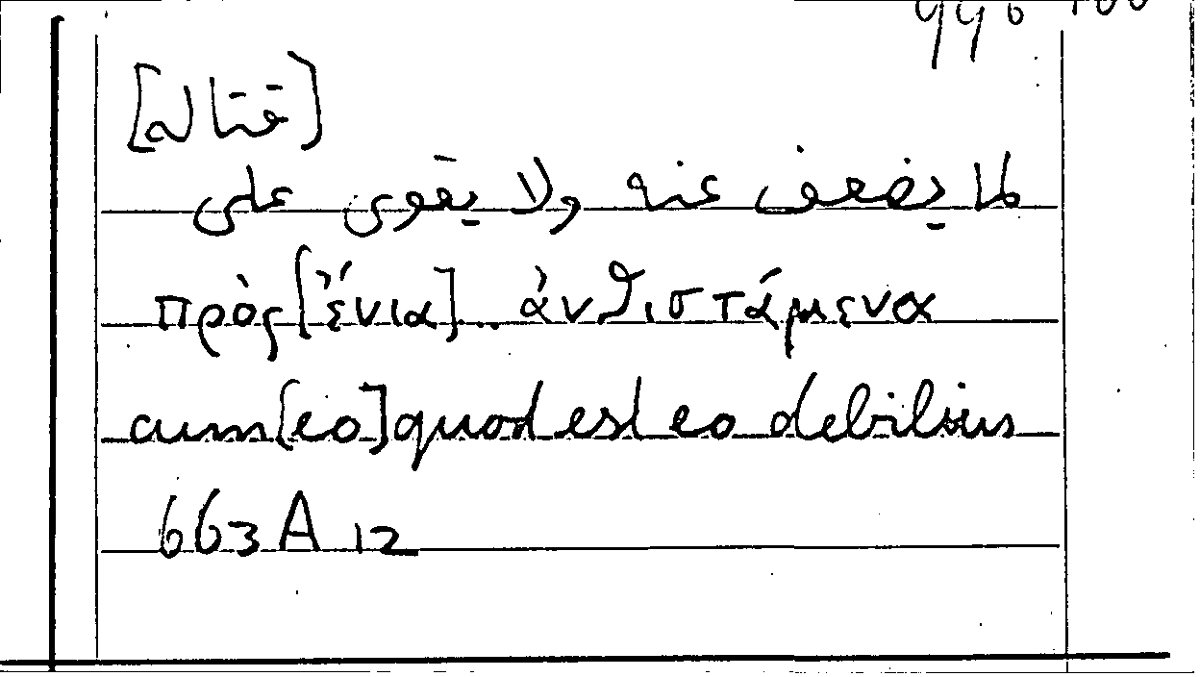 [قتاله]
لما يضعف عنه ولا يقوى على
πρὸς[ἔνια]...ἀνθιστάμενα
cum[eo]quod est eo debilius
663A12